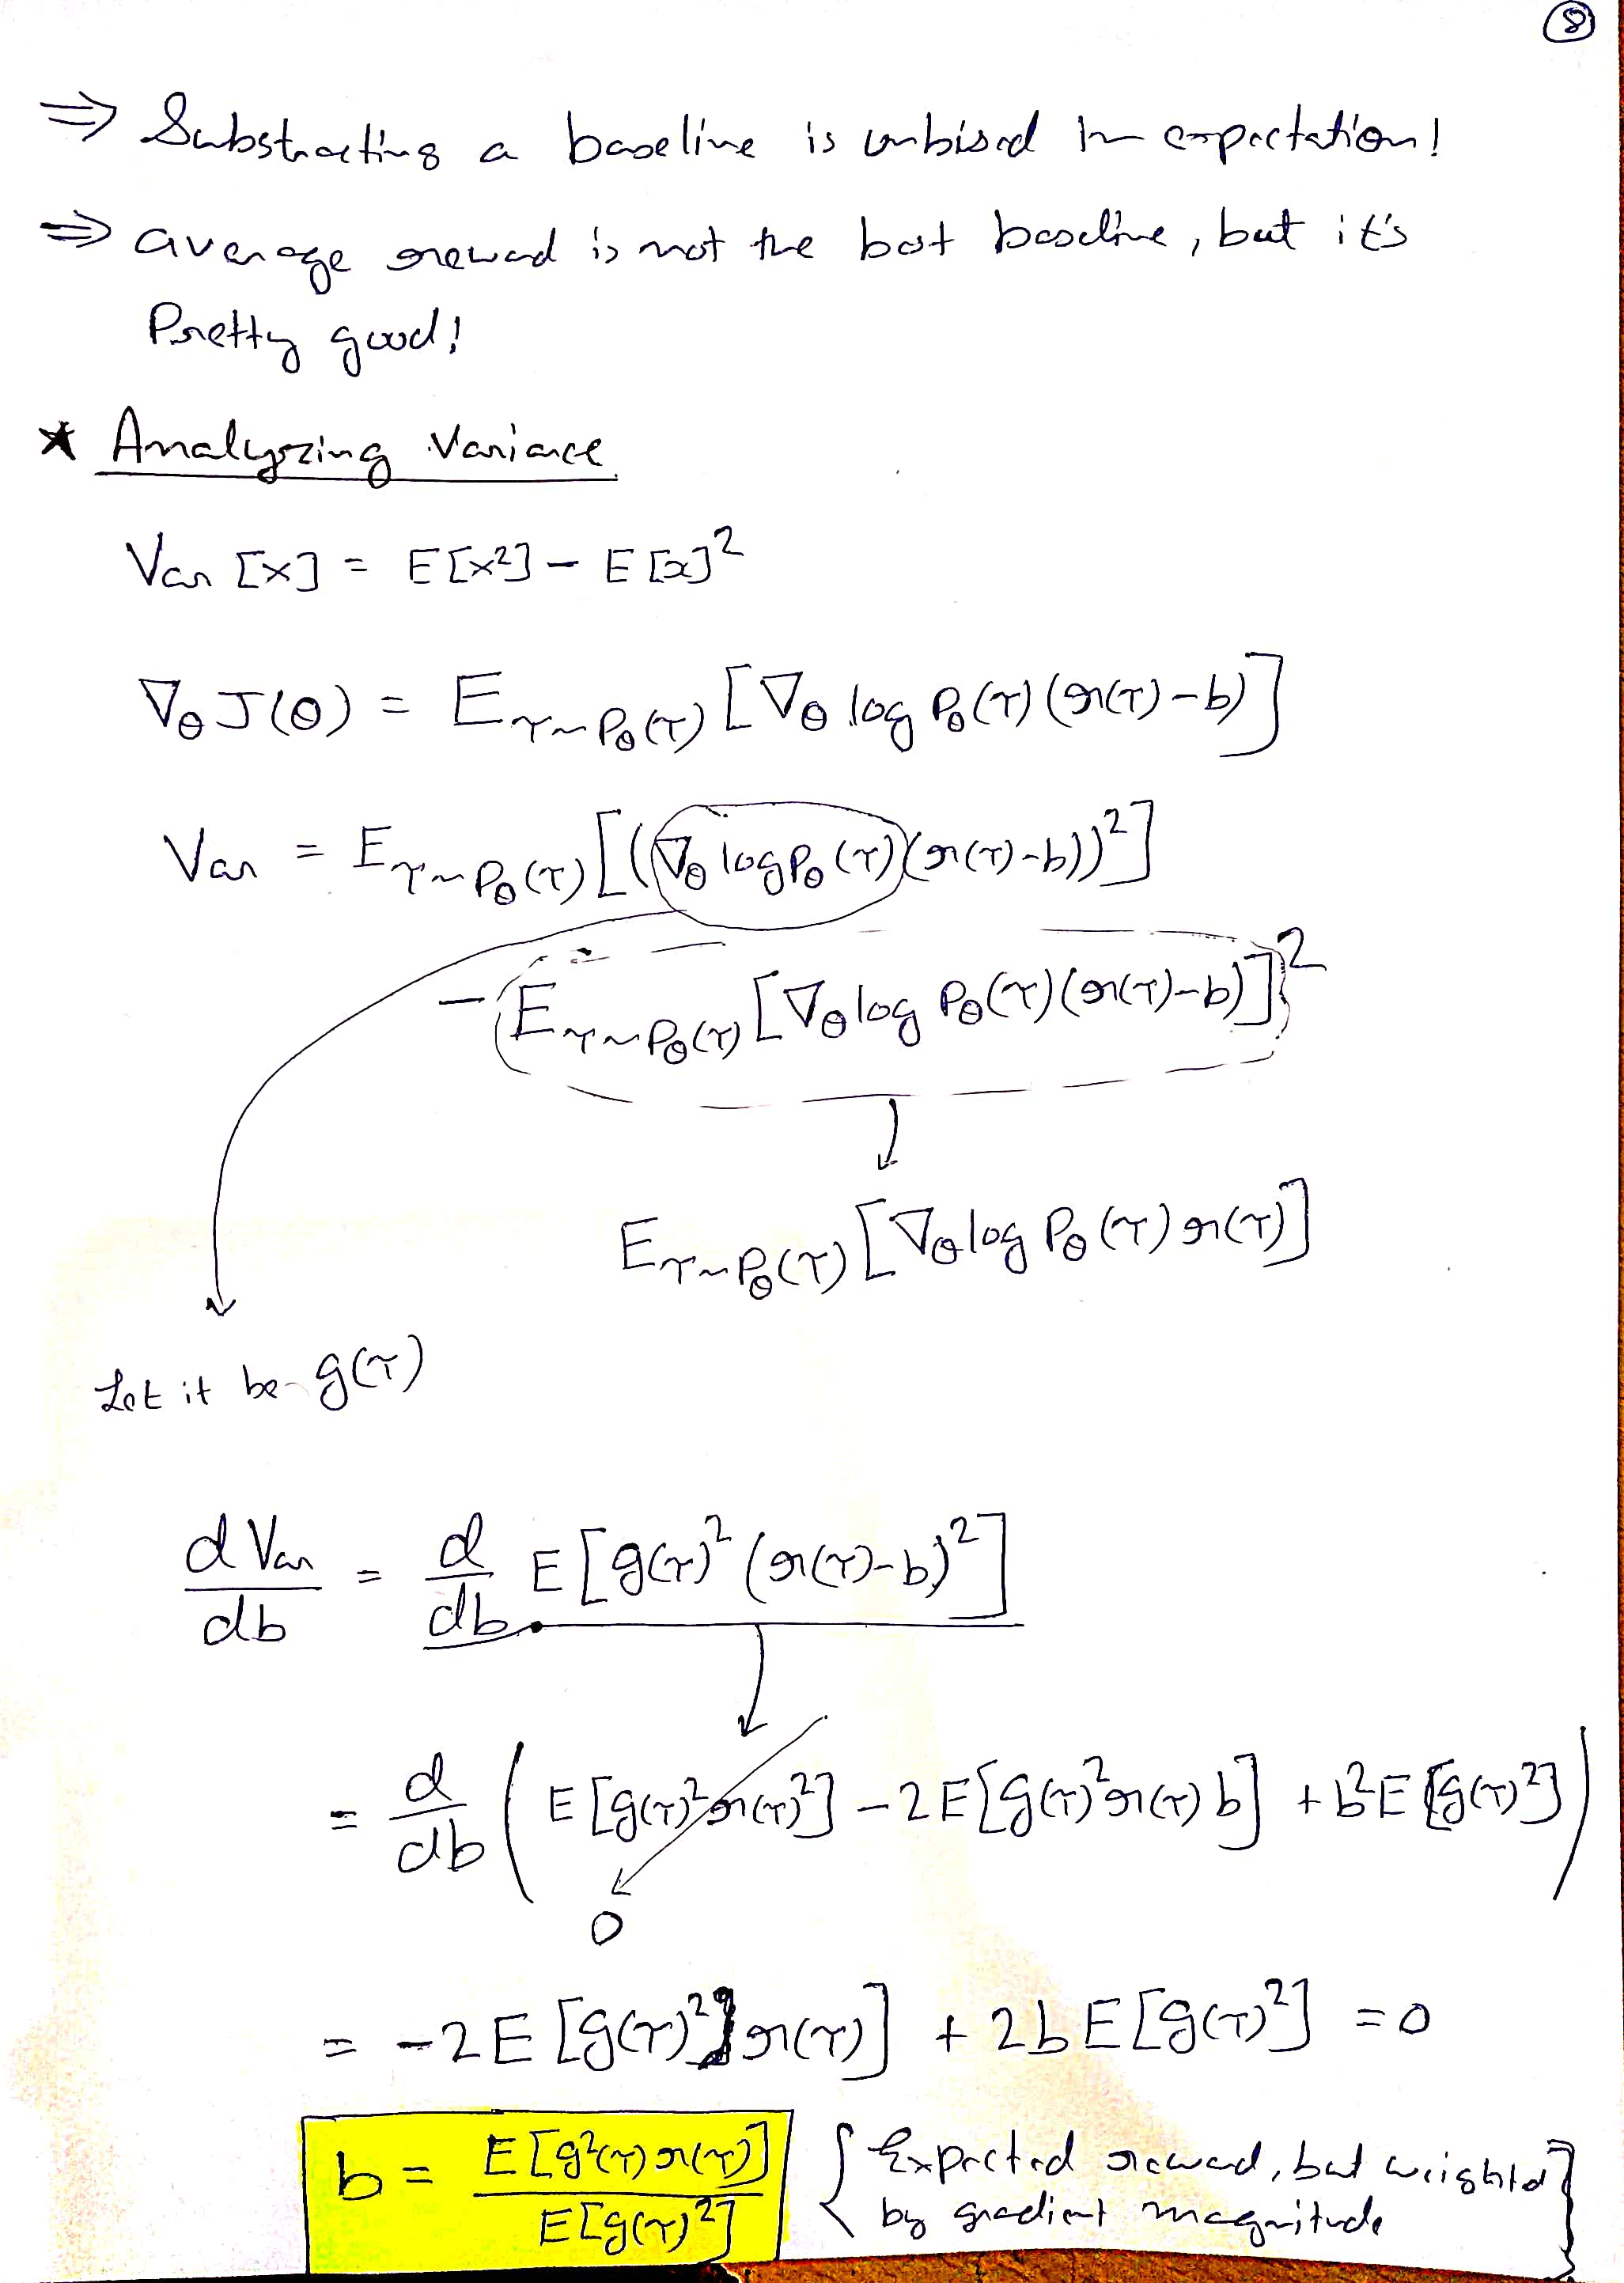 8
⇒ Substracting a baseline is unbised in expectation!
⇒ average reward is not the best baseline, but it's
Pretty good!
* Analyzing Variance
Var [x] = E[x²] – E[x]²
∇θ J(θ) = E τ~Pθ(τ) [∇θ log Pθ(τ) (r(τ) – b)]
Var = E τ~Pθ(τ) [(∇θ log Pθ(τ) (r(τ) – b))²]
– E τ~Pθ(τ) [∇θ log Pθ(τ) (r(τ) – b)]²
E τ~Pθ(τ) [∇θ log Pθ(τ) r(τ)]
Let it be g(τ)
d Var / db = d/db E [g(τ)² (r(τ) – b)²]
= d/db ( E [g(τ)² r(τ)²] – 2 E [g(τ)² r(τ) b] + b² E [g(τ)²] )
0
= –2 E [g(τ)² r(τ)] + 2b E [g(τ)²] = 0
b = E [g²(τ) r(τ)] / E [g(τ)²] { Expected reward, but weighted
by gradient magnitude }